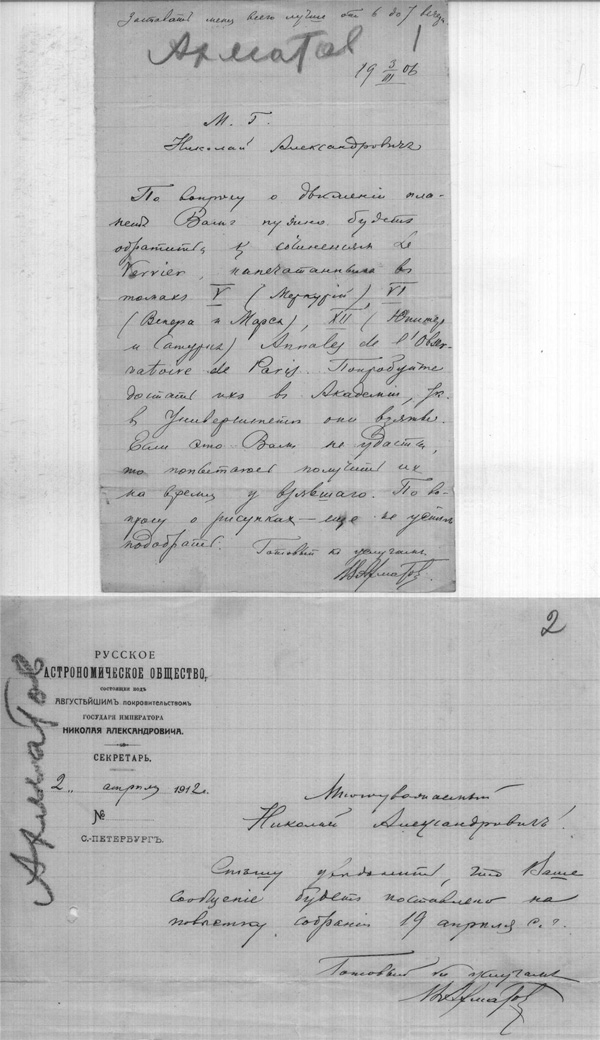 Заставать меня всего лучше от 6 до 7 веч.
Ахматов
1
19 3/III 06
М. Г.
Николай Александровичъ
По вопросу о движеніи пла-
нетъ Вамъ нужно будетъ
обратиться къ сочиненіям Le
Verrier, напечатаннымъ въ
томахъ V (Меркурій), VI
(Венера и Марсъ), XII (Юпитер
и Сатурнъ) Annales de l'Obser-
vatoire de Paris. Попробуйте
достать ихъ въ Академіи,
в Университетѣ они взяты.
Если это Вамъ не удастся,
то попытаюсь получить их
на время у взявшаго. По во-
просу о рисункахъ — еще не успѣлъ
подобрать. Готовый къ услугамъ
В Ахматовъ.
2
РУССКОЕ
АСТРОНОМИЧЕСКОЕ ОБЩЕСТВО,
состоящее подъ
АВГУСТѢЙШИМЪ покровительствомъ
ГОСУДАРЯ ИМПЕРАТОРА
НИКОЛАЯ АЛЕКСАНДРОВИЧА.
СЕКРЕТАРЬ.
2 апрѣля 1912 г.
№
С.-ПЕТЕРБУРГЪ.
Ахматов
Многоуважаемый
Николай Александровичъ!
Спѣшу увѣдомить, что Ваше
сообщеніе будетъ поставлено на
повѣстку собранія 19 апрѣля с. г.
Готовый къ услугамъ
В Ахматовъ